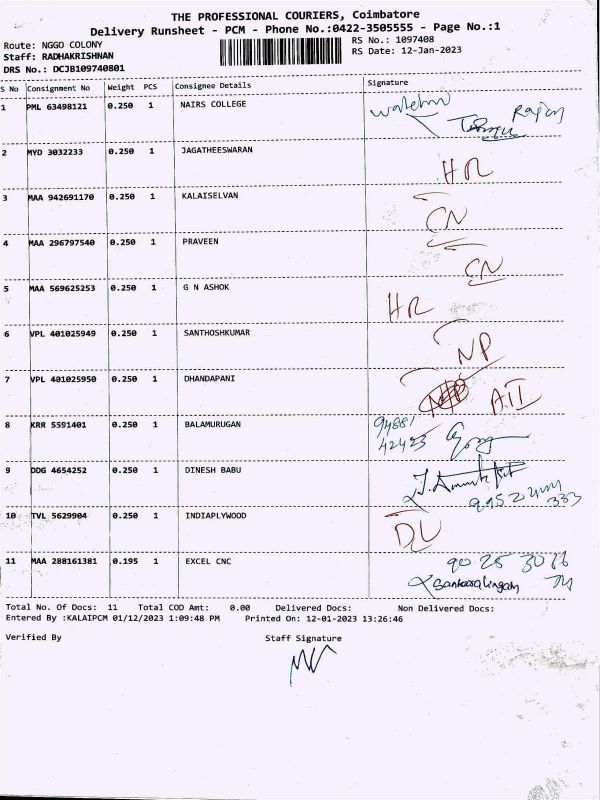 THE PROFESSIONAL COURIERS, Coimbatore
Delivery Runsheet - PCM - Phone No.:0422-3505555 - Page No.:1
Route: NGGO COLONY
RS No.: 1097408
Staff: RADHAKRISHNAN
RS Date: 12-Jan-2023
DRS No.: DCJB109740801
S No Consignment No Weight PCS Consignee Details Signature
1 PML 63498121 0.250 1 NAIRS COLLEGE
2 MYD 3032233 0.250 1 JAGATHEESWARAN HR
3 MAA 942691170 0.250 1 KALAISELVAN CN
4 MAA 296797540 0.250 1 PRAVEEN CN
5 MAA 569625253 0.250 1 G N ASHOK HR
6 VPL 401025949 0.250 1 SANTHOSHKUMAR NP
7 VPL 401025950 0.250 1 DHANDAPANI AII
8 KRR 5591401 0.250 1 BALAMURUGAN 94881
42423
9 DDG 4654252 0.250 1 DINESH BABU
10 TVL 5629904 0.250 1 INDIAPLYWOOD DL
11 MAA 288161381 0.195 1 EXCEL CNC
Sankaralingam
Total No. Of Docs: 11 Total COD Amt: 0.00 Delivered Docs: Non Delivered Docs:
Entered By :KALAIPCM 01/12/2023 1:09:48 PM Printed On: 12-01-2023 13:26:46
Verified By Staff Signature